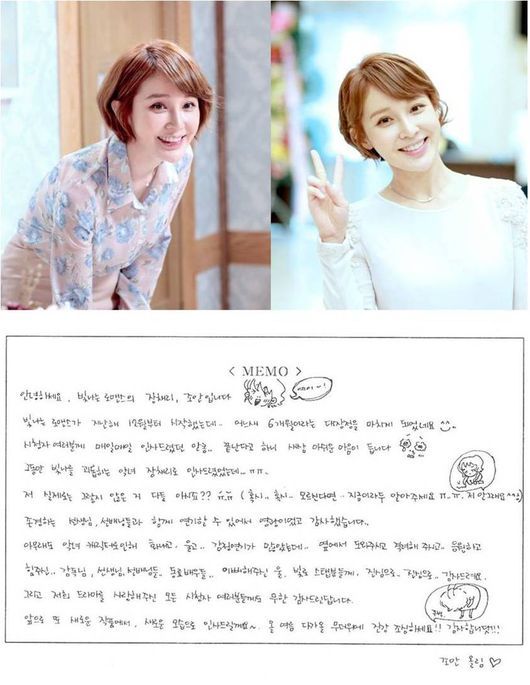 < MEMO >
안녕하세요, 빛나는 로맨스의 장채리, 조안입니다
빛나는 로맨스가 지난해 12월부터 시작했는데.. 어느새 6개월이라는 대장정을 마치게 되었네요
시청자 여러분께 매일매일 인사드렸던 만큼.. 끝난다고 하니 사람 아쉬운 마음이 듭니다
그동안 빛나를 괴롭히는 악녀 장채리로 인사드렸었는데.. ㅠㅠ.
저 실제로는 그렇지 않은 거 다들 아시죠?? ㅠㅠ ( 혹시.. 혹시.. 모르셨다면.. 지금이라두 알아주세요 ㅠ.ㅠ. 저 안그래요
존경하는 선생님, 선배님들과 함께 연기할 수 있어서 영광이었고 감사했습니다..
아무래도 악녀 캐릭터로인해 화내고, 울고.. 감정연기가 많았는데.. 옆에서 도와주시고 격려해 주시고.. 응원하고
힘주신.. 감독님, 선생님, 선배님들.. 동료배우들.. 이뻐해주신 울. 빛로 스탭분들께, 진심으로.. 진심으로.. 감사드려요.
그리고 저희 드라마를 사랑해주신 모든 시청자 여러분들께도 무한 감사드린답니다.
앞으로 또 새로운 작품에서, 새로운 모습으로 인사드릴게요~ 올 여름 다가올 무더위에 건강 조심하세요!! 감사합니닷!!!
조안 올림 ♡